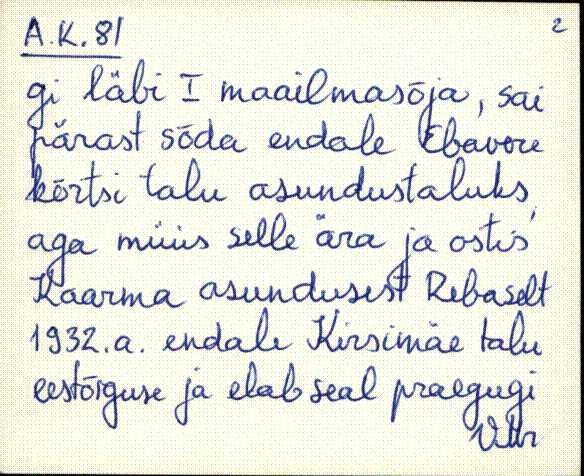 A.K. 81
2
gi läbi I maailmasõja, sai
pärast sõda endale Ebavere
kõrtsi talu asundustaluks,
aga müüs selle ära ja ostis
Kaarma asundusest Rebaselt
1932.a. endale Kirsimäe talu
eestõiguse ja elab seal praegugi